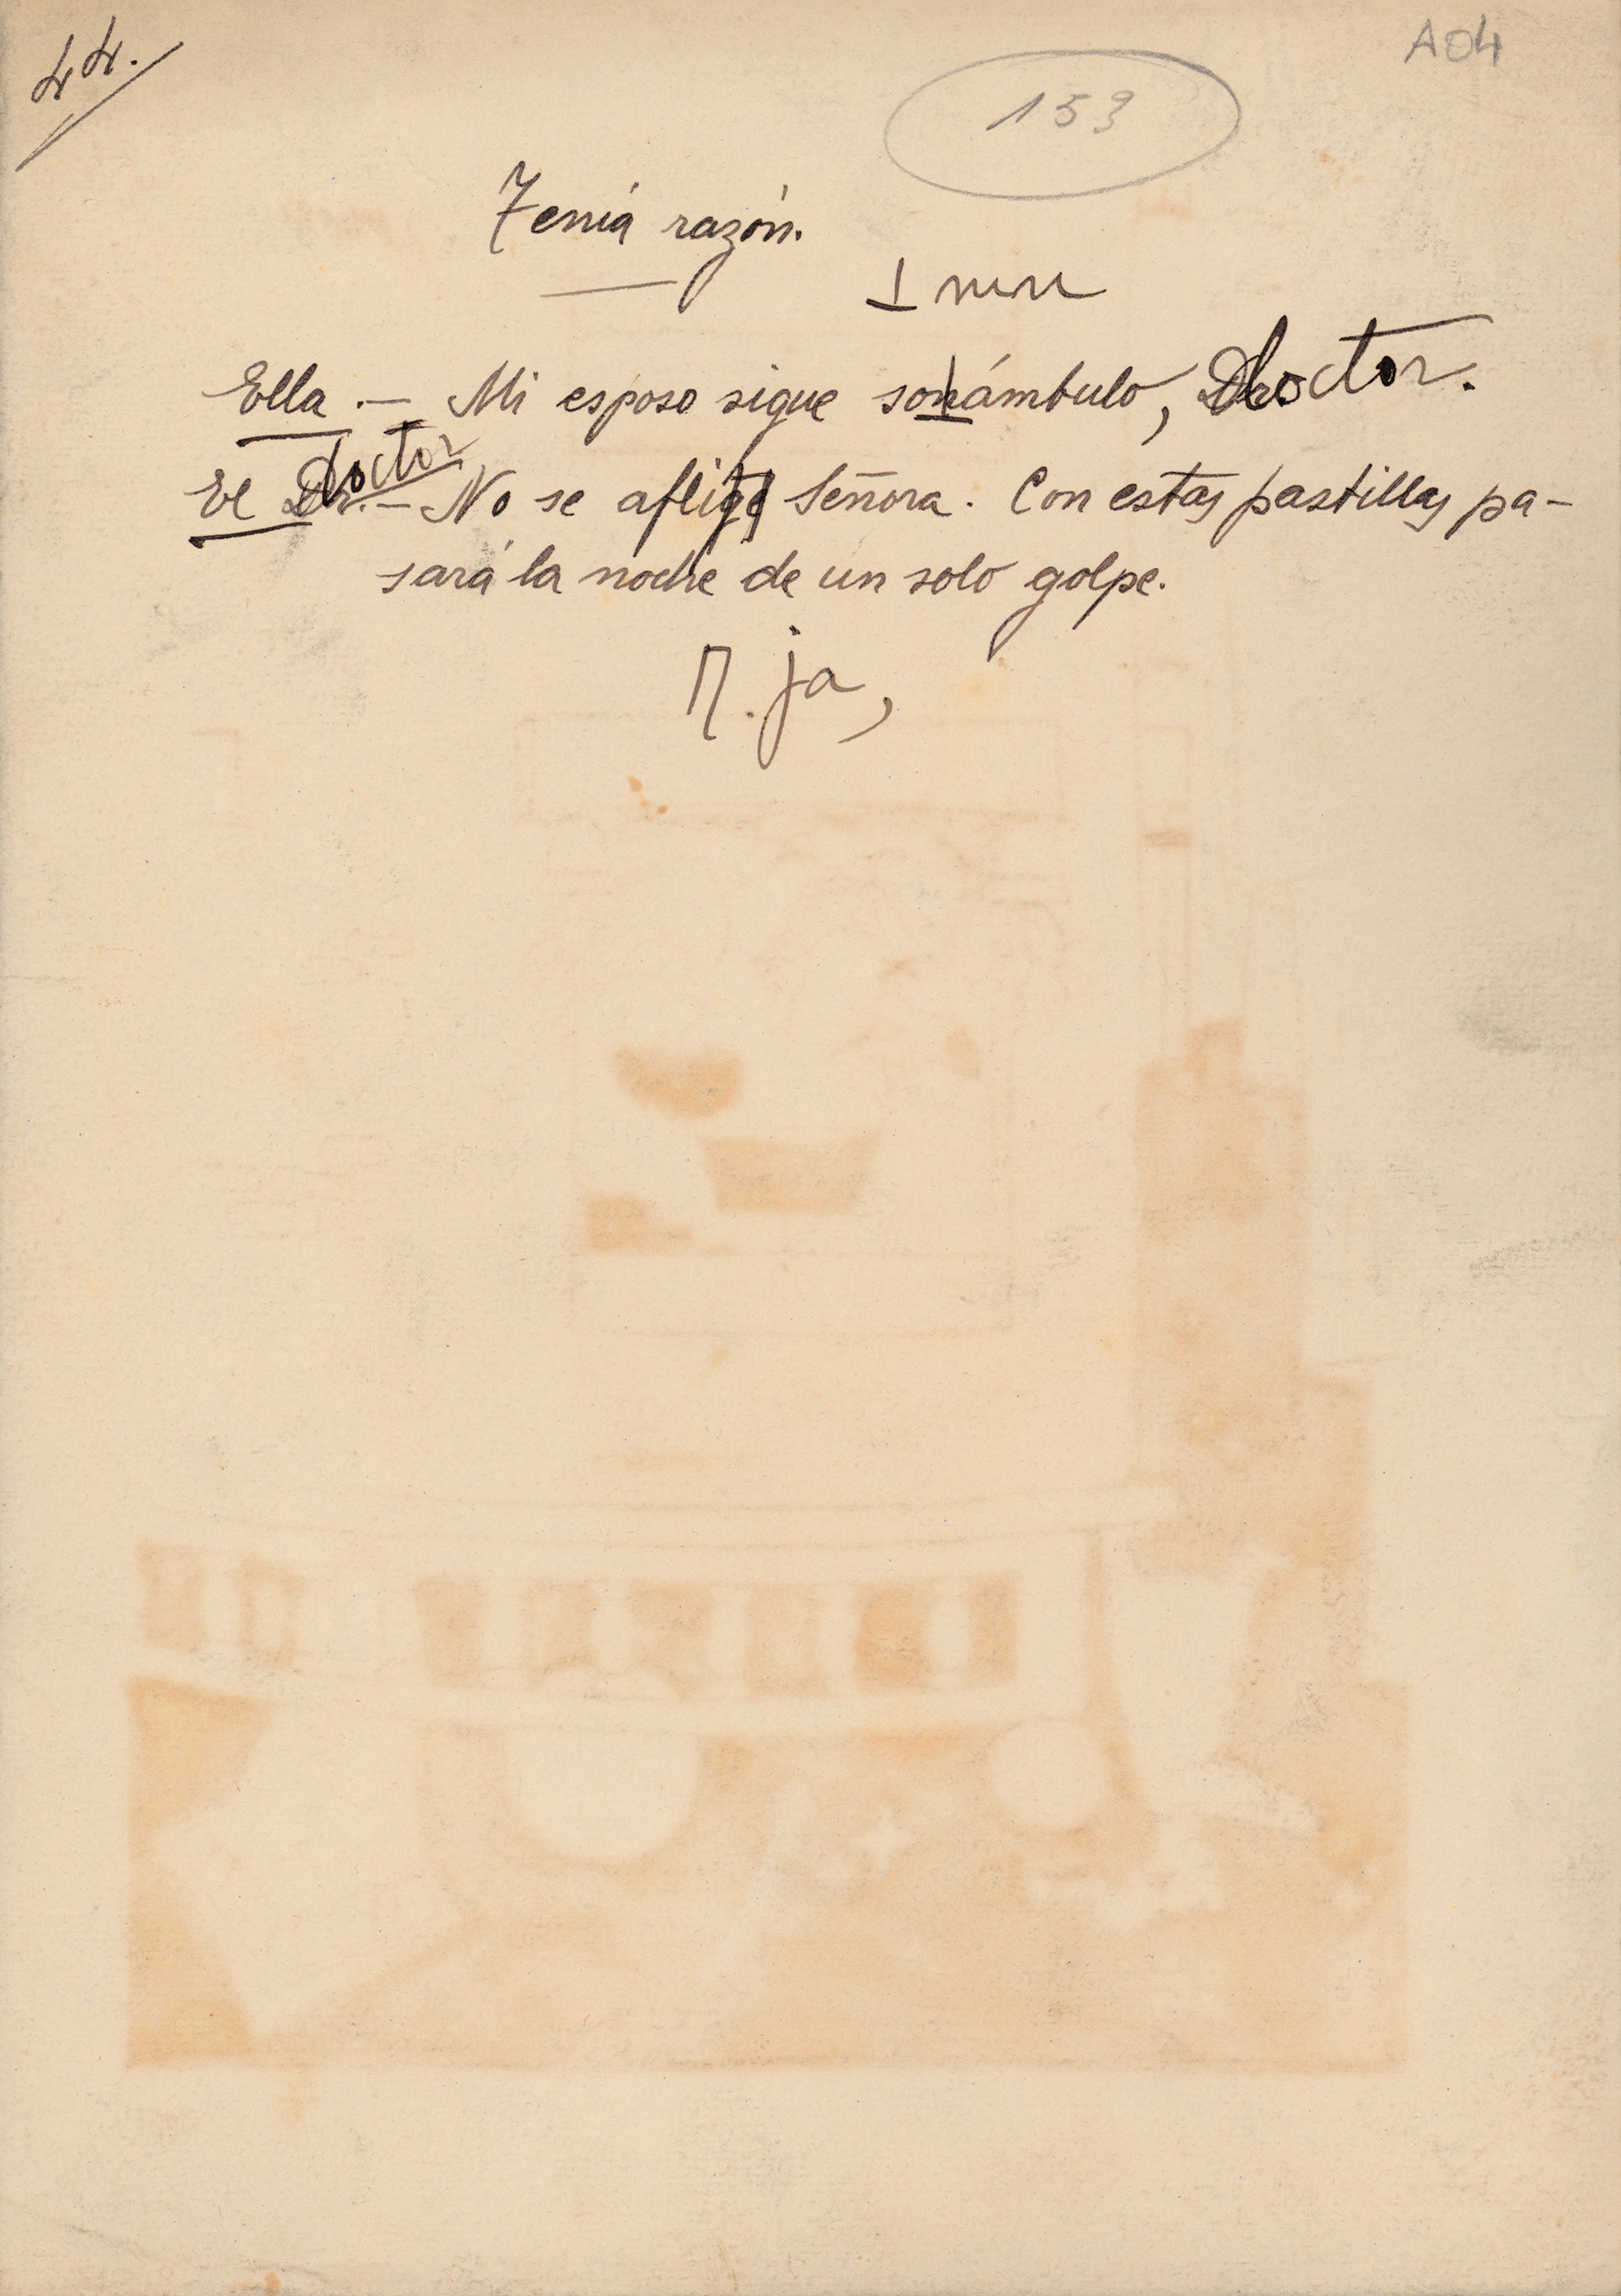 44.
A04
153
Tenía razón.
Ella.— Mi esposo sigue sonámbulo, doctor.
El doctor.— No se aflija Señora. Con estas pastillas pa-
sará la noche de un solo golpe.